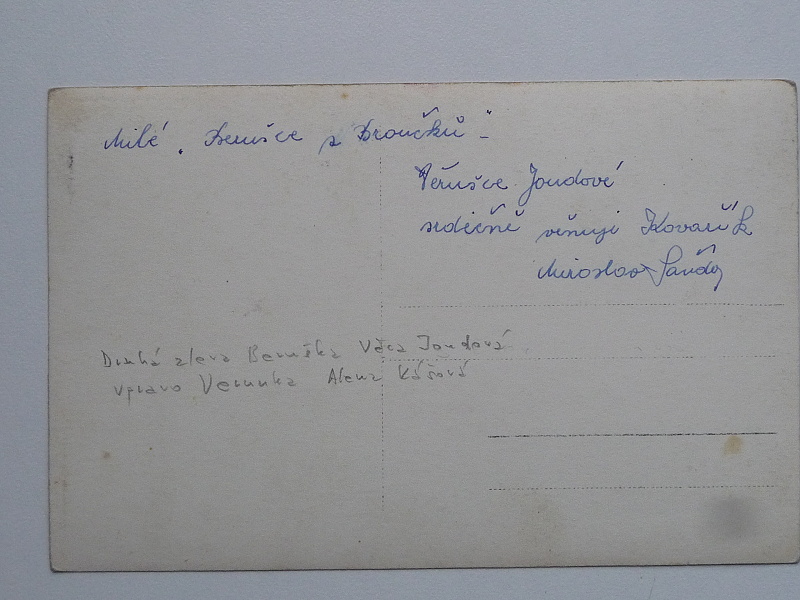 Milé „Berušce z Broučků" -
Věrušce Joudové
srdečně věnuje Kovařík
Miroslav
Druhá zleva Beruška Věra Joudová
vpravo Verunka Alena Kášová